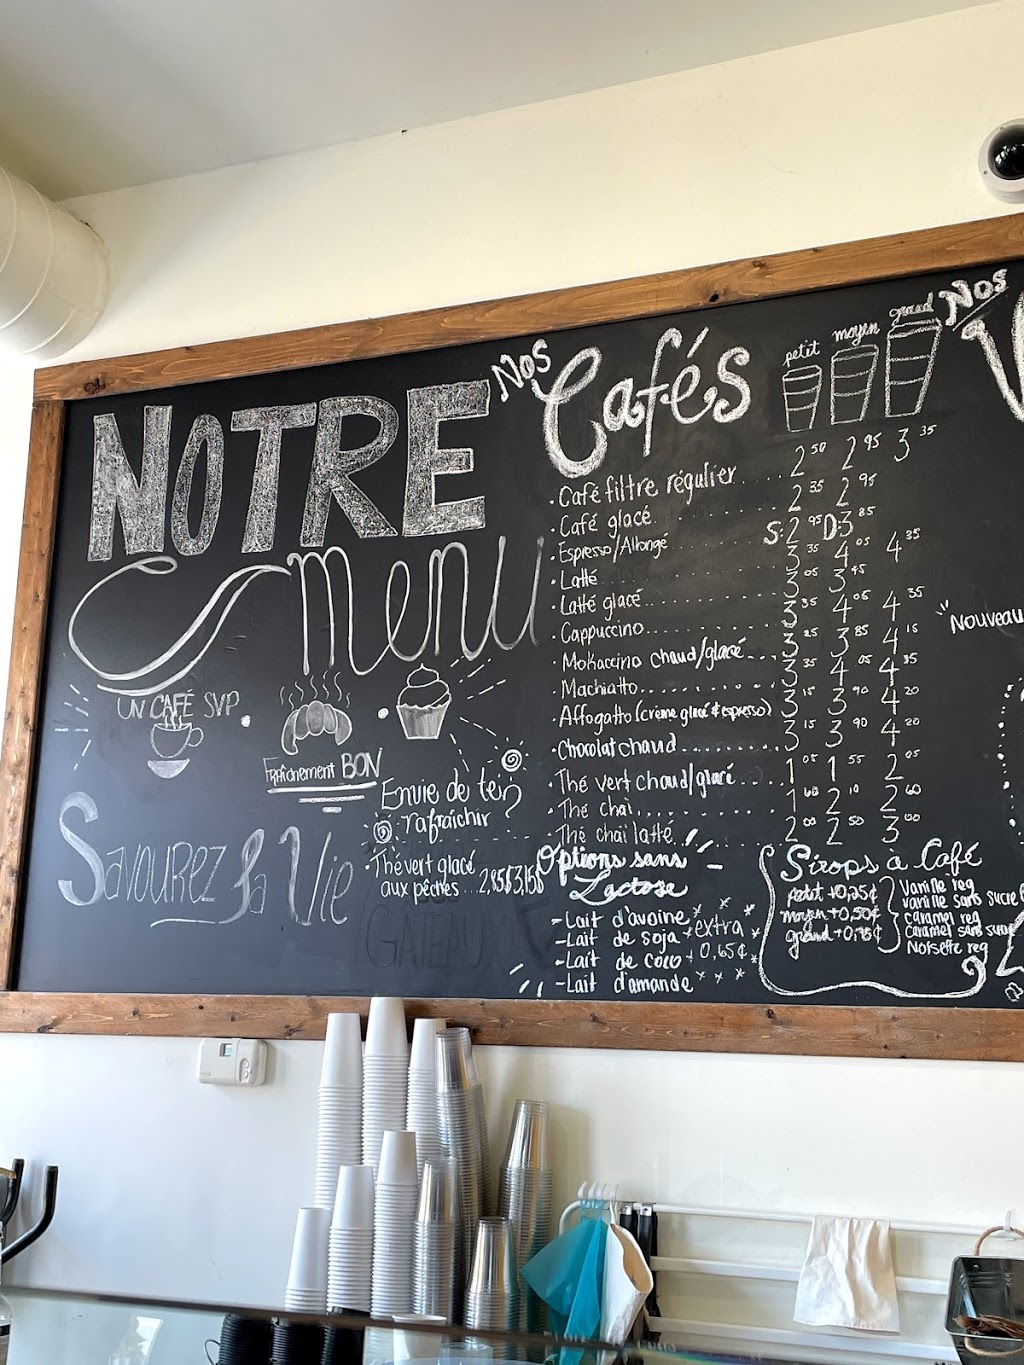 NOTRE
menu
UN CAFÉ SVP
FRAÎCHEMENT BON
Savourez la Vie
Envie de te
rafraîchir ?
• Thé vert glacé
aux pêches...
Nos Cafés
petit moyen grand
• Café filtre régulier..... 2 50 2 95 3 35
• Café glacé. 2 35 2 95
• Espresso/Allongé S: 2 95 D: 3 85
• Latté 3 35 4 05 4 35
• Latté glacé 3 05 3 45
• Cappuccino 3 35 4 05 4 35
• Mokaccino chaud/glacé 3 25 3 85 4 15
• Machiatto 3 35 4 05 4 35
• Affogatto (crème glacé & espresso) 3 15 3 90 4 20
• Chocolat chaud 3 15 3 90 4 20
• Thé vert chaud/glacé 1 05 1 55 2 05
• Thé chai 1 60 2 10 2 60
• Thé chaï latté 2 00 2 50 3 00
Options sans
Lactose
- Lait d'avoine
- Lait de soja
- Lait de coco
- Lait d'amande
+ extra
0,65¢
Sirops à Café
petit +0,35¢
moyen +0,50¢
grand
Vanille reg
vanille sans sucre
caramel reg
caramel sans sucre
Noisette reg
Nos
Nouveau
GATEAU